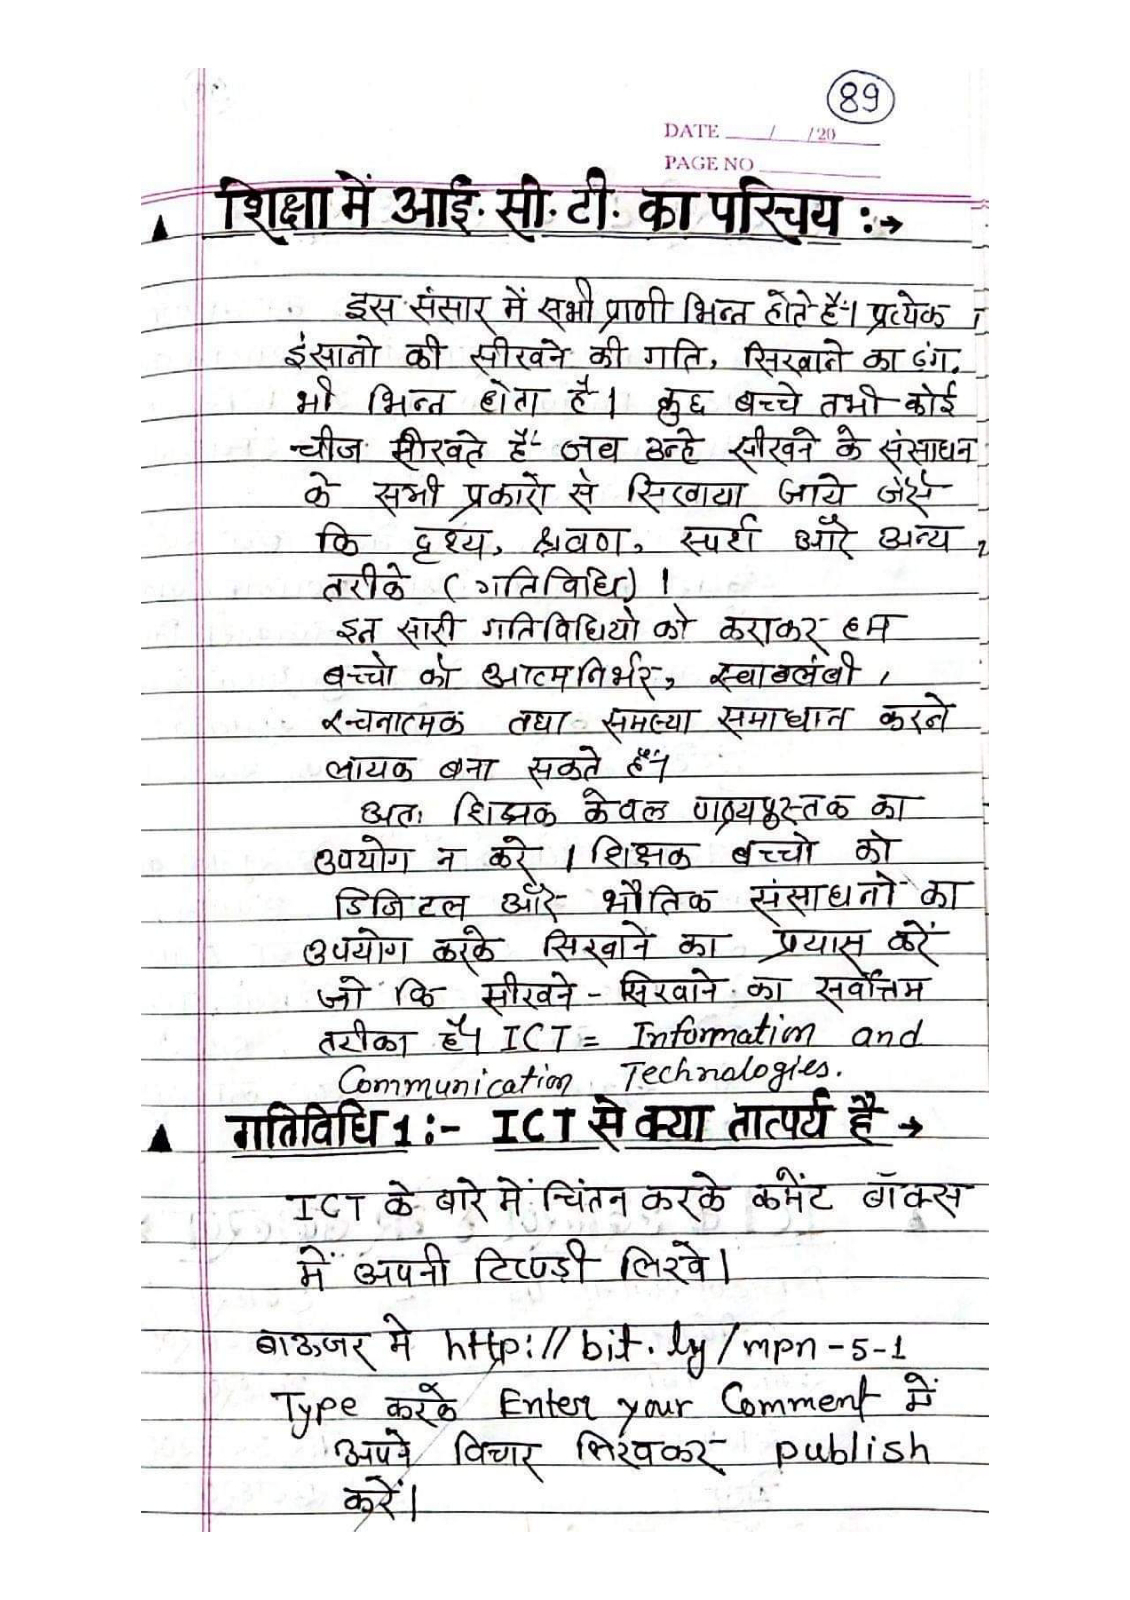 89
DATE ___/___/20___
PAGE NO ___
शिक्षा में आई.सी.टी. का परिचय :→
इस संसार में सभी प्राणी भिन्न होते हैं। प्रत्येक
इंसानो की सीखने की गति, सिखाने का ढंग,
भी भिन्न होता है। कुछ बच्चे तभी कोई
चीज सीखते हैं जब उन्हे सीखने के संसाधन
के सभी प्रकारो से सिखाया जाये जैसे
कि दृश्य, श्रवण, स्पर्श और अन्य,
तरीके (गतिविधि) ।
इन सारी गतिविधियो को कराकर हम
बच्चो को आत्मनिर्भर, स्वाबलंबी,
रचनात्मक तथा समस्या समाधान करने
लायक बना सकते हैं।
अतः शिक्षक केवल पाठ्यपुस्तक का
उपयोग न करे । शिक्षक बच्चो को
डिजिटल और भौतिक संसाधनो का
उपयोग करके सिखाने का प्रयास करें
जो कि सीखने - सिखाने का सर्वोत्तम
तरीका है। ICT = Information and
Communication Technologies.
गतिविधि 1 :- ICT से क्या तात्पर्य है →
ICT के बारे में चिंतन करके कमेंट बॉक्स
में अपनी टिप्पड़ी लिखे।
बाऊजर मे http://bit.ly/mpn-5-1
Type करके Enter your Comment में
अपने विचार लिखकर publish
करें।